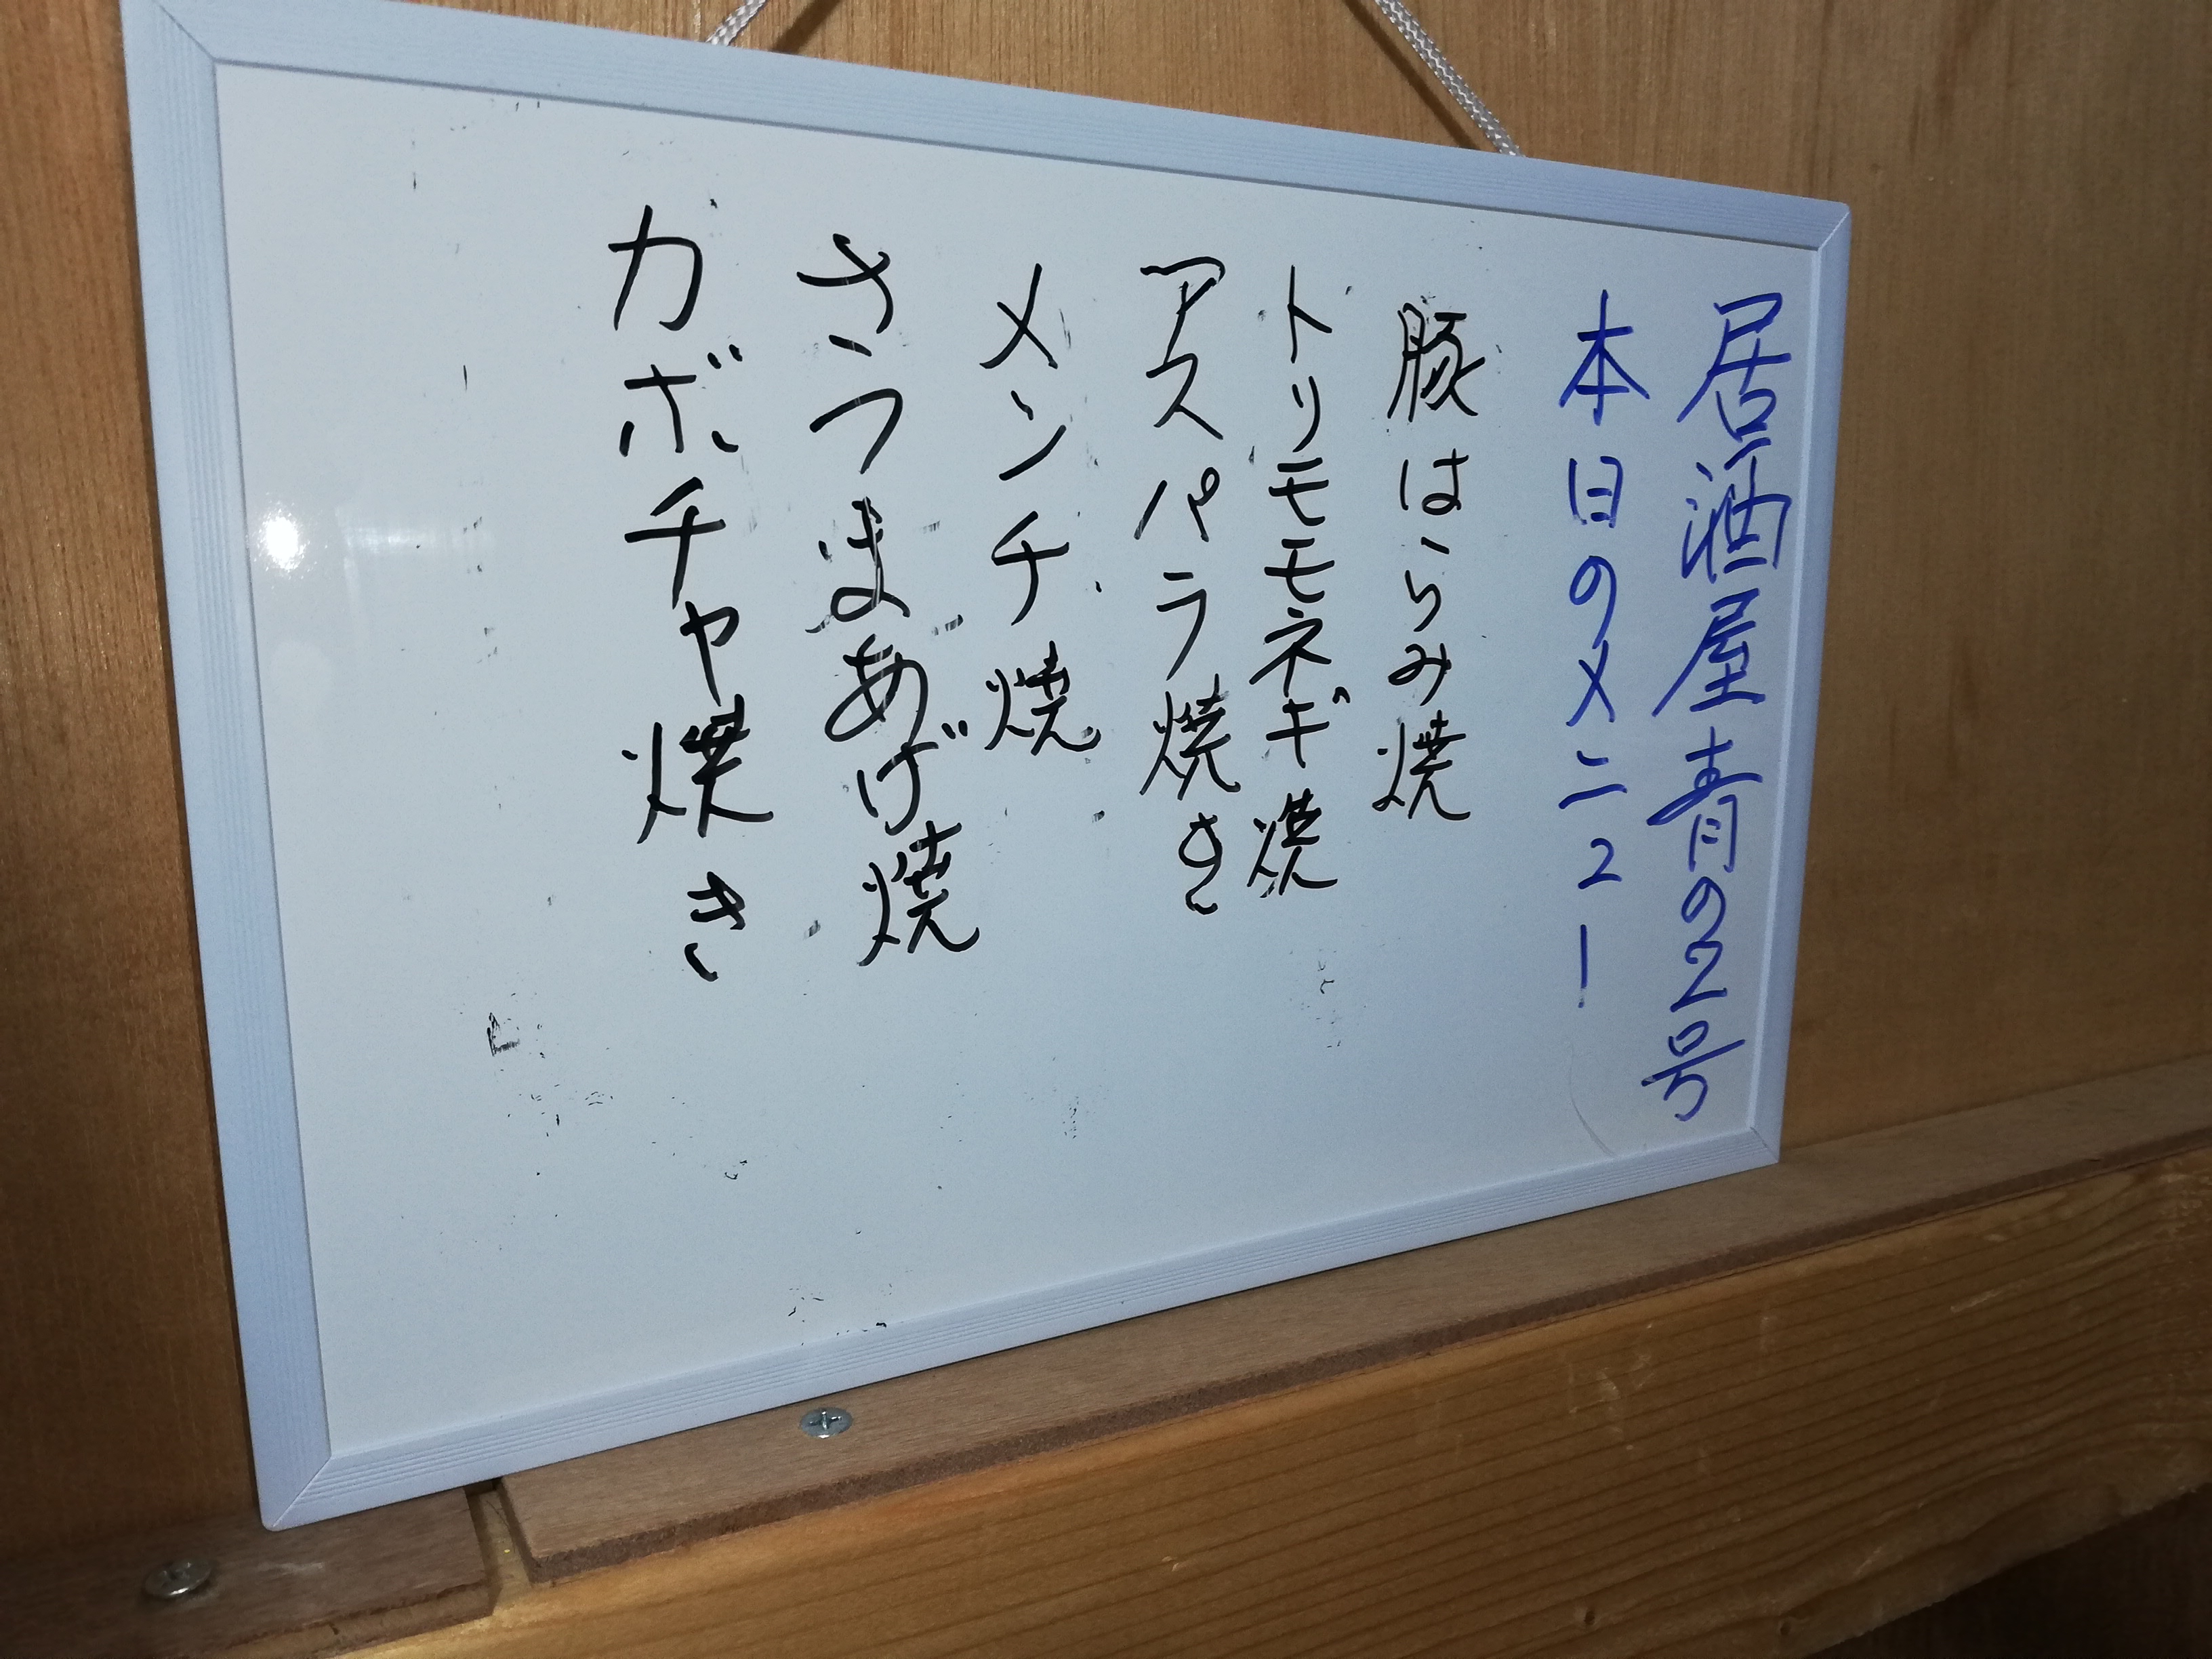 居酒屋青の2号
本日のメニュー
豚はらみ焼
トリモモネギ焼
アスパラ焼き
メンチ焼
さつまあげ焼
カボチャ焼き